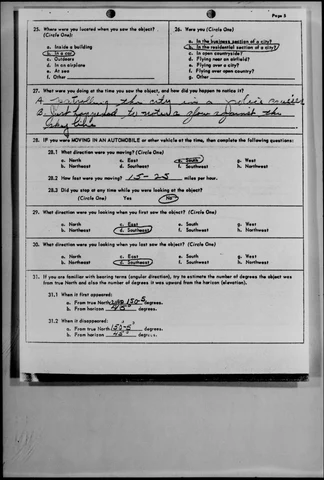 Page 3
25. Where were you located when you saw the object? (Circle One):
a. Inside a building
b. In a car
c. Outdoors
d. In an airplane
e. At sea
f. Other
26. Were you (Circle One)
a. In the business section of a city?
b. In the residential section of a city?
c. In open countryside?
d. Flying near an airfield?
e. Flying over a city?
f. Flying over open country?
g. Other
27. What were you doing at the time you saw the object, and how did you happen to notice it?
A. Patrolling the city in a police cruiser
B. Just happened to notice a glow against the
sky line
28. IF you were MOVING IN AN AUTOMOBILE or other vehicle at the time, then complete the following questions:
28.1 What direction were you moving? (Circle One)
a. North c. East e. South g. West
b. Northeast d. Southeast f. Southwest h. Northwest
28.2 How fast were you moving? 15-25 miles per hour.
28.3 Did you stop at any time while you were looking at the object?
(Circle One) Yes No
29. What direction were you looking when you first saw the object? (Circle One)
a. North c. East e. South g. West
b. Northeast d. Southeast f. Southwest h. Northwest
30. What direction were you looking when you last saw the object? (Circle One)
a. North c. East e. South g. West
b. Northeast d. Southeast f. Southwest h. Northwest
31. If you are familiar with bearing terms (angular direction), try to estimate the number of degrees the object was
from true North and also the number of degrees it was upward from the horizon (elevation).
31.1 When it first appeared:
a. From true North 150-5 degrees.
b. From horizon 45° degrees.
31.2 When it disappeared:
a. From true North 150-5° degrees.
b. From horizon 45° degrees.